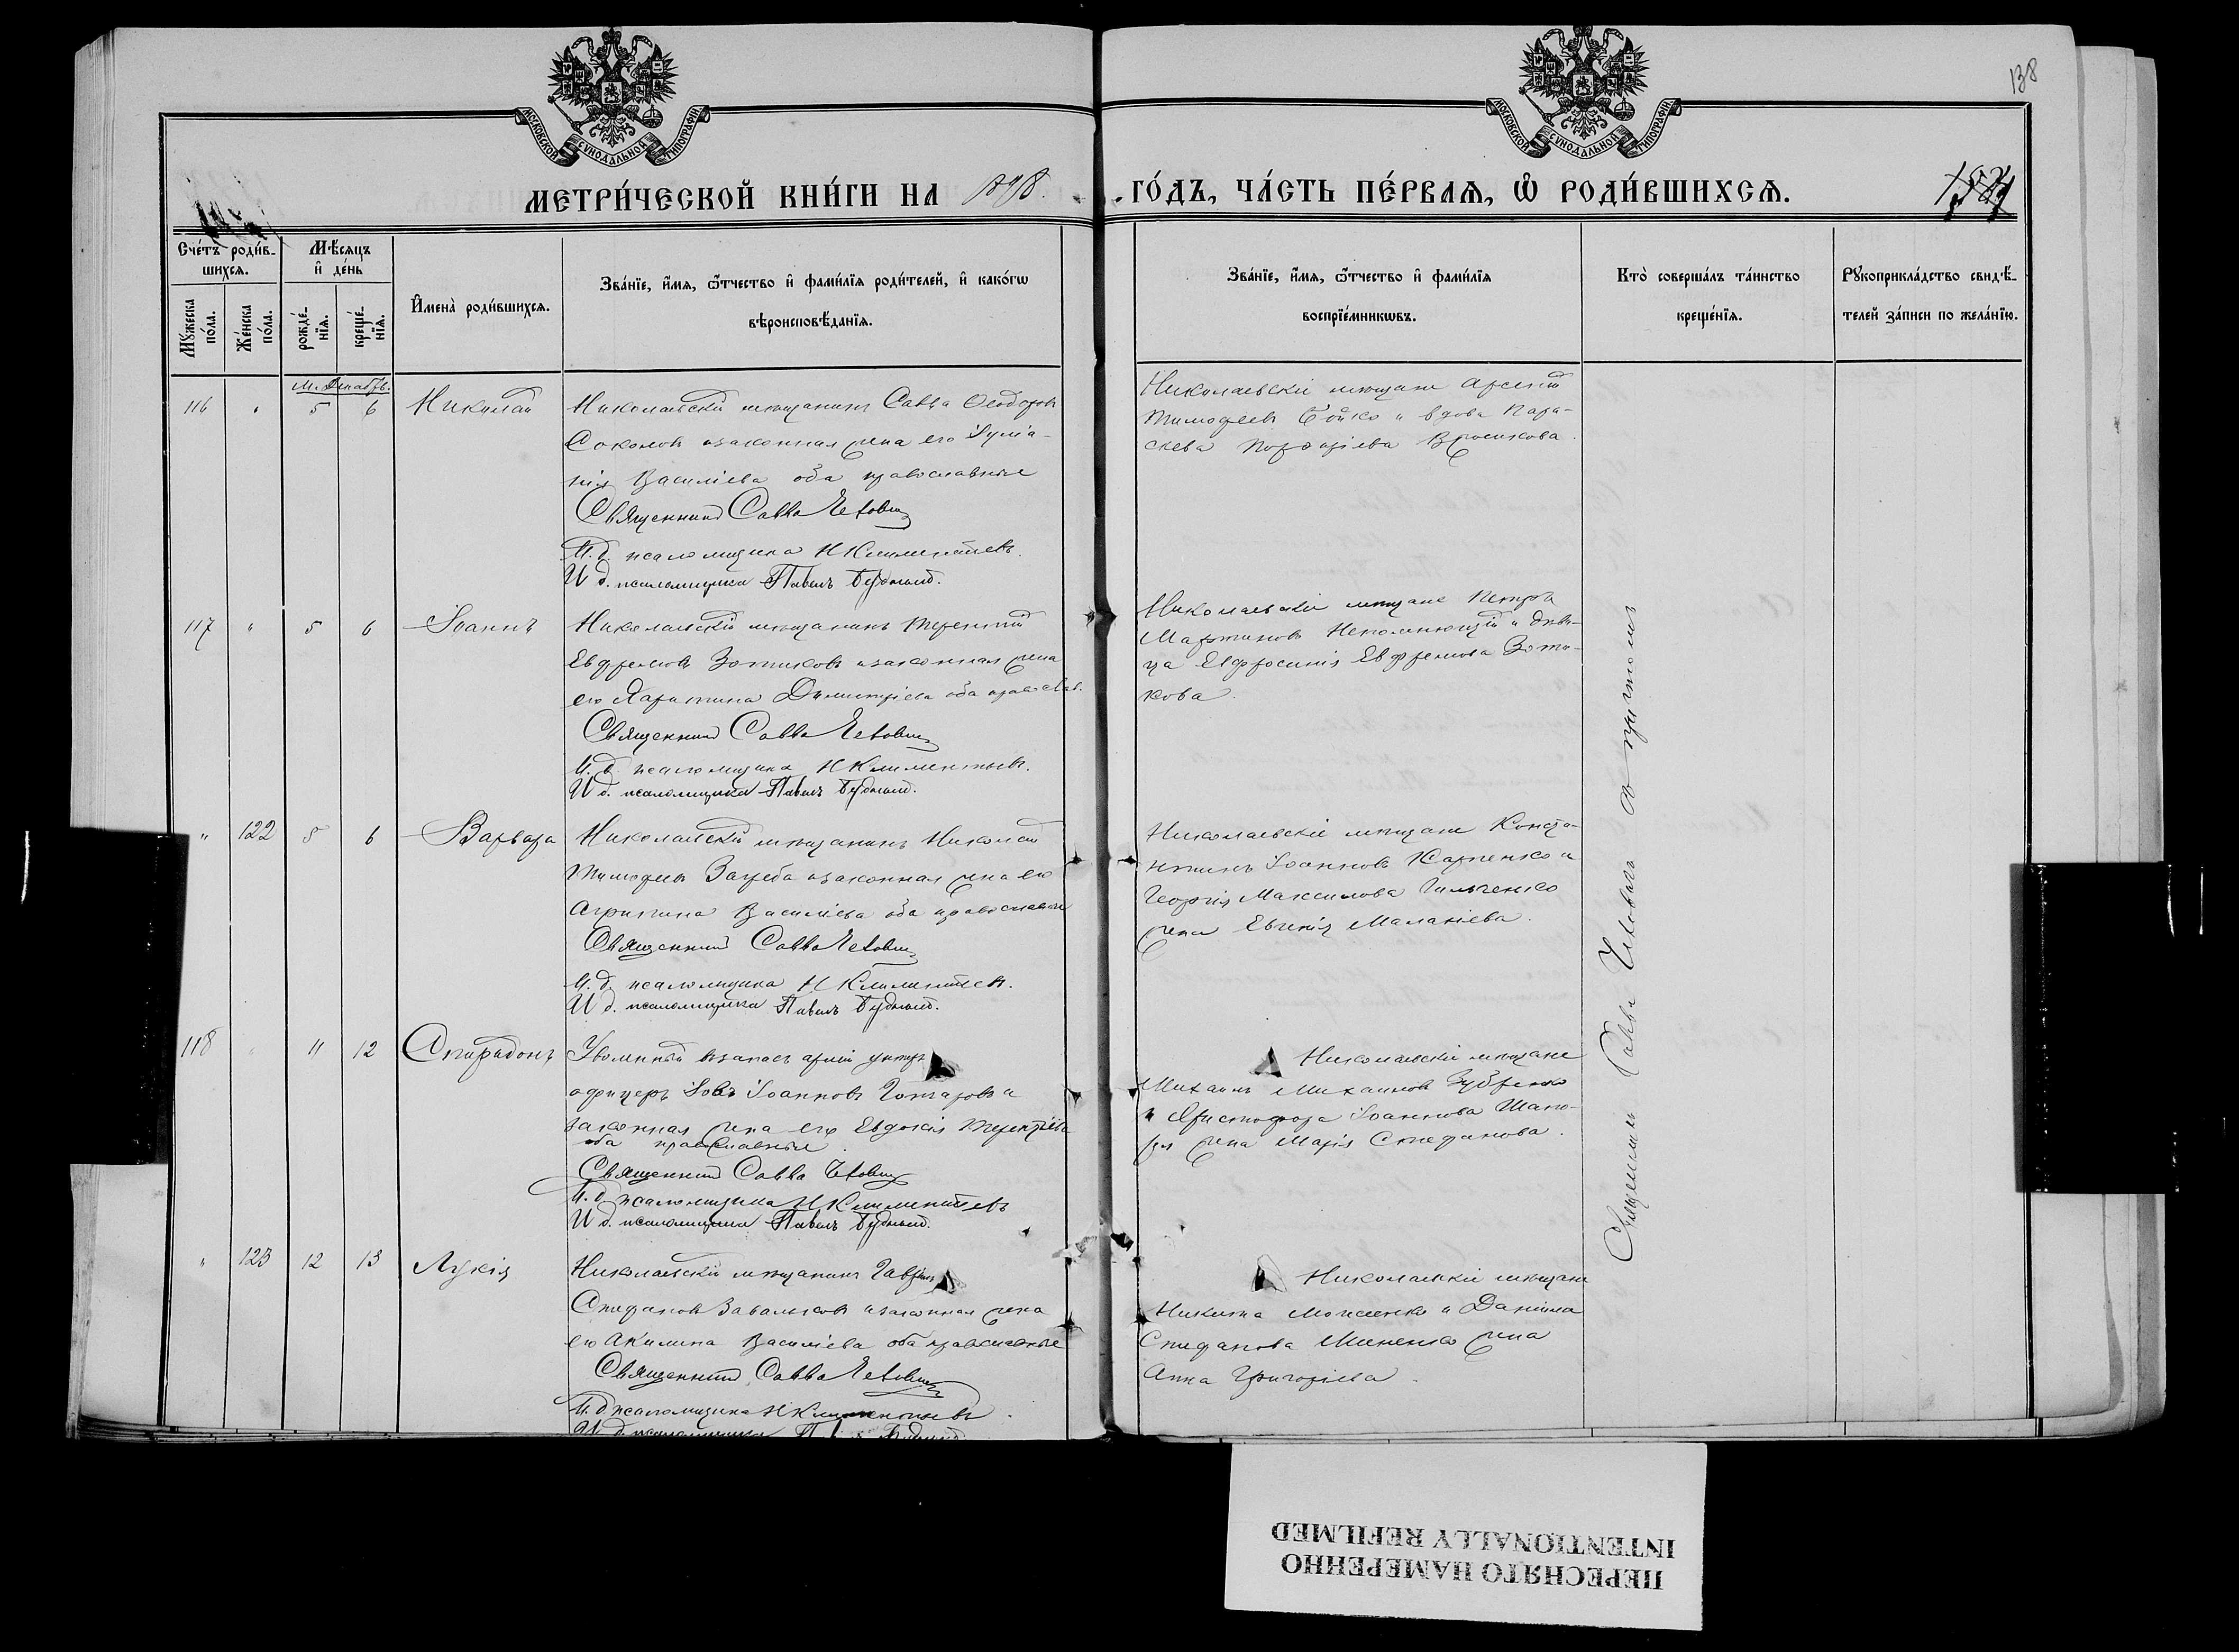 138
МОСКОВСКОЙ СѴНОДАЛЬНОЙ ТИПОГРАФІИ
МОСКОВСКОЙ СѴНОДАЛЬНОЙ ТИПОГРАФІИ
МЕТРИ́ЧЕСКОЙ КНИ́ГИ НА 1898. ГО́ДЪ, ЧА́СТЬ ПЕ́РВАѦ, Ѡ҆ РОДИ́ВШИХСѦ.
Сче́тъ роди́в-
шихсѧ.
Мѣ́сѧцъ
и҆ де́нь
Мꙋ́жеска по́ла.
Же́нска по́ла.
рожде́-нїѧ.
креще́-нїѧ.
И҆мена̀ роди́вшихсѧ.
Зва́нїе, и҆́мѧ, ѻ҆́тчество и҆ фами́лїѧ роди́телей, и҆ како́гѡ
вѣроисповѣ́данїѧ.
Зва́нїе, и҆́мѧ, ѻ҆́тчество и҆ фами́лїѧ
воспрїе́мникѡвъ.
Кто̀ соверша́лъ та́инство
креще́нїѧ.
Рꙋкоприкла́дство свидѣ́-
телей за́писи по жела́нїю.
М. Декабрь.
116 " 5 6 Николай
Николаевскій мѣщанинъ Савва Ѳеодоровъ
Соколовъ и законная жена его Іуліа-
нія Василіева оба православные
Священникъ Савва
И. д. псаломщика Н Климентьевъ.
И д. псаломщика Павелъ
Николаевскіе мѣщане Арсеній
Тимофеевъ Бойко и вдова Пара-
скева
117 " 5 6 Іоаннъ
Николаевскій мѣщанинъ Терентій
Евфремовъ Зотиковъ и законная жена
его Харитина Димитріева оба православ.
Священникъ Савва
И. д. псаломщика Н Климентьевъ.
И д. псаломщика Павелъ
Николаевскіе мѣщане Петръ
Мартиновъ Непомнющій и дѣви-
ца Евфросинія Евфремова Зоти-
кова.
" 122 5 6 Варвара
Николаевскій мѣщанинъ Николай
Тимофеевъ Загреба и законная жена его
Агрипина Василіева оба православные
Священникъ Савва
И. д. псаломщика Н Климентьевъ.
И д. псаломщика Павелъ
Николаевскіе мѣщане Конста-
нтинъ Іоанновъ Карпенко и
Георгія Максимова Гильченко
жена Евгенія Маланіева.
118 " 11 12 Спиридонъ
Уволенный въ запасъ арміи унтеръ
офицеръ Іовъ Іоанновъ Гончаровъ и
законная жена его Евдокія Терентіева
оба православные.
Священникъ Савва
И. д. псаломщика Н Климентьевъ
И д. псаломщика Павелъ
Николаевскіе мѣщане
Михаилъ Михаиловъ Зубренко
и Христофора Іоаннова Шапо-
ря жена Марія Стефанова.
" 123 12 13 Лукія
Николаевскій мѣщанинъ Гавріилъ
Стефановъ Завальковъ и законная жена
его Акилина Василіева оба православные
Священникъ Савва
И. д. псаломщика Н Климентьевъ.
И д. псаломщика
Николаевскіе мѣщане
Никита Моисеенко и Даніила
Стефанова Миненко жена
Анна Григоріева.
Священникъ Савва
ПЕРЕСНЯТО НАМЕРЕННО
INTENTIONALLY REFILMED